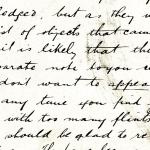 ledged, but as they w
st of objects that cam
il is likely that the
parate note to you w
don't want to appea
any time you find y
with too many flints
should be glad to re